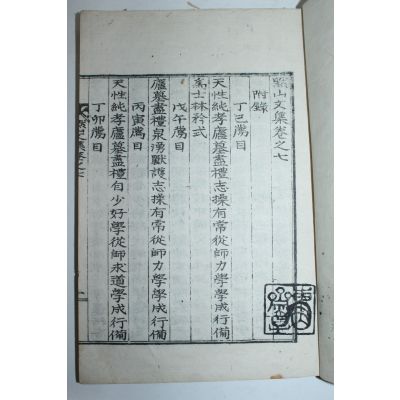 山文集卷之七
附錄
丁巳薦目
天性純孝廬墓盡禮志操有常從師力學學成行備
爲士林矜式
戊午薦目
廬墓盡禮泉湧獸護志操有常從師力學學成行備
丙寅薦目
天性純孝廬墓盡禮自少好學從師求道學成行備
丁卯薦目